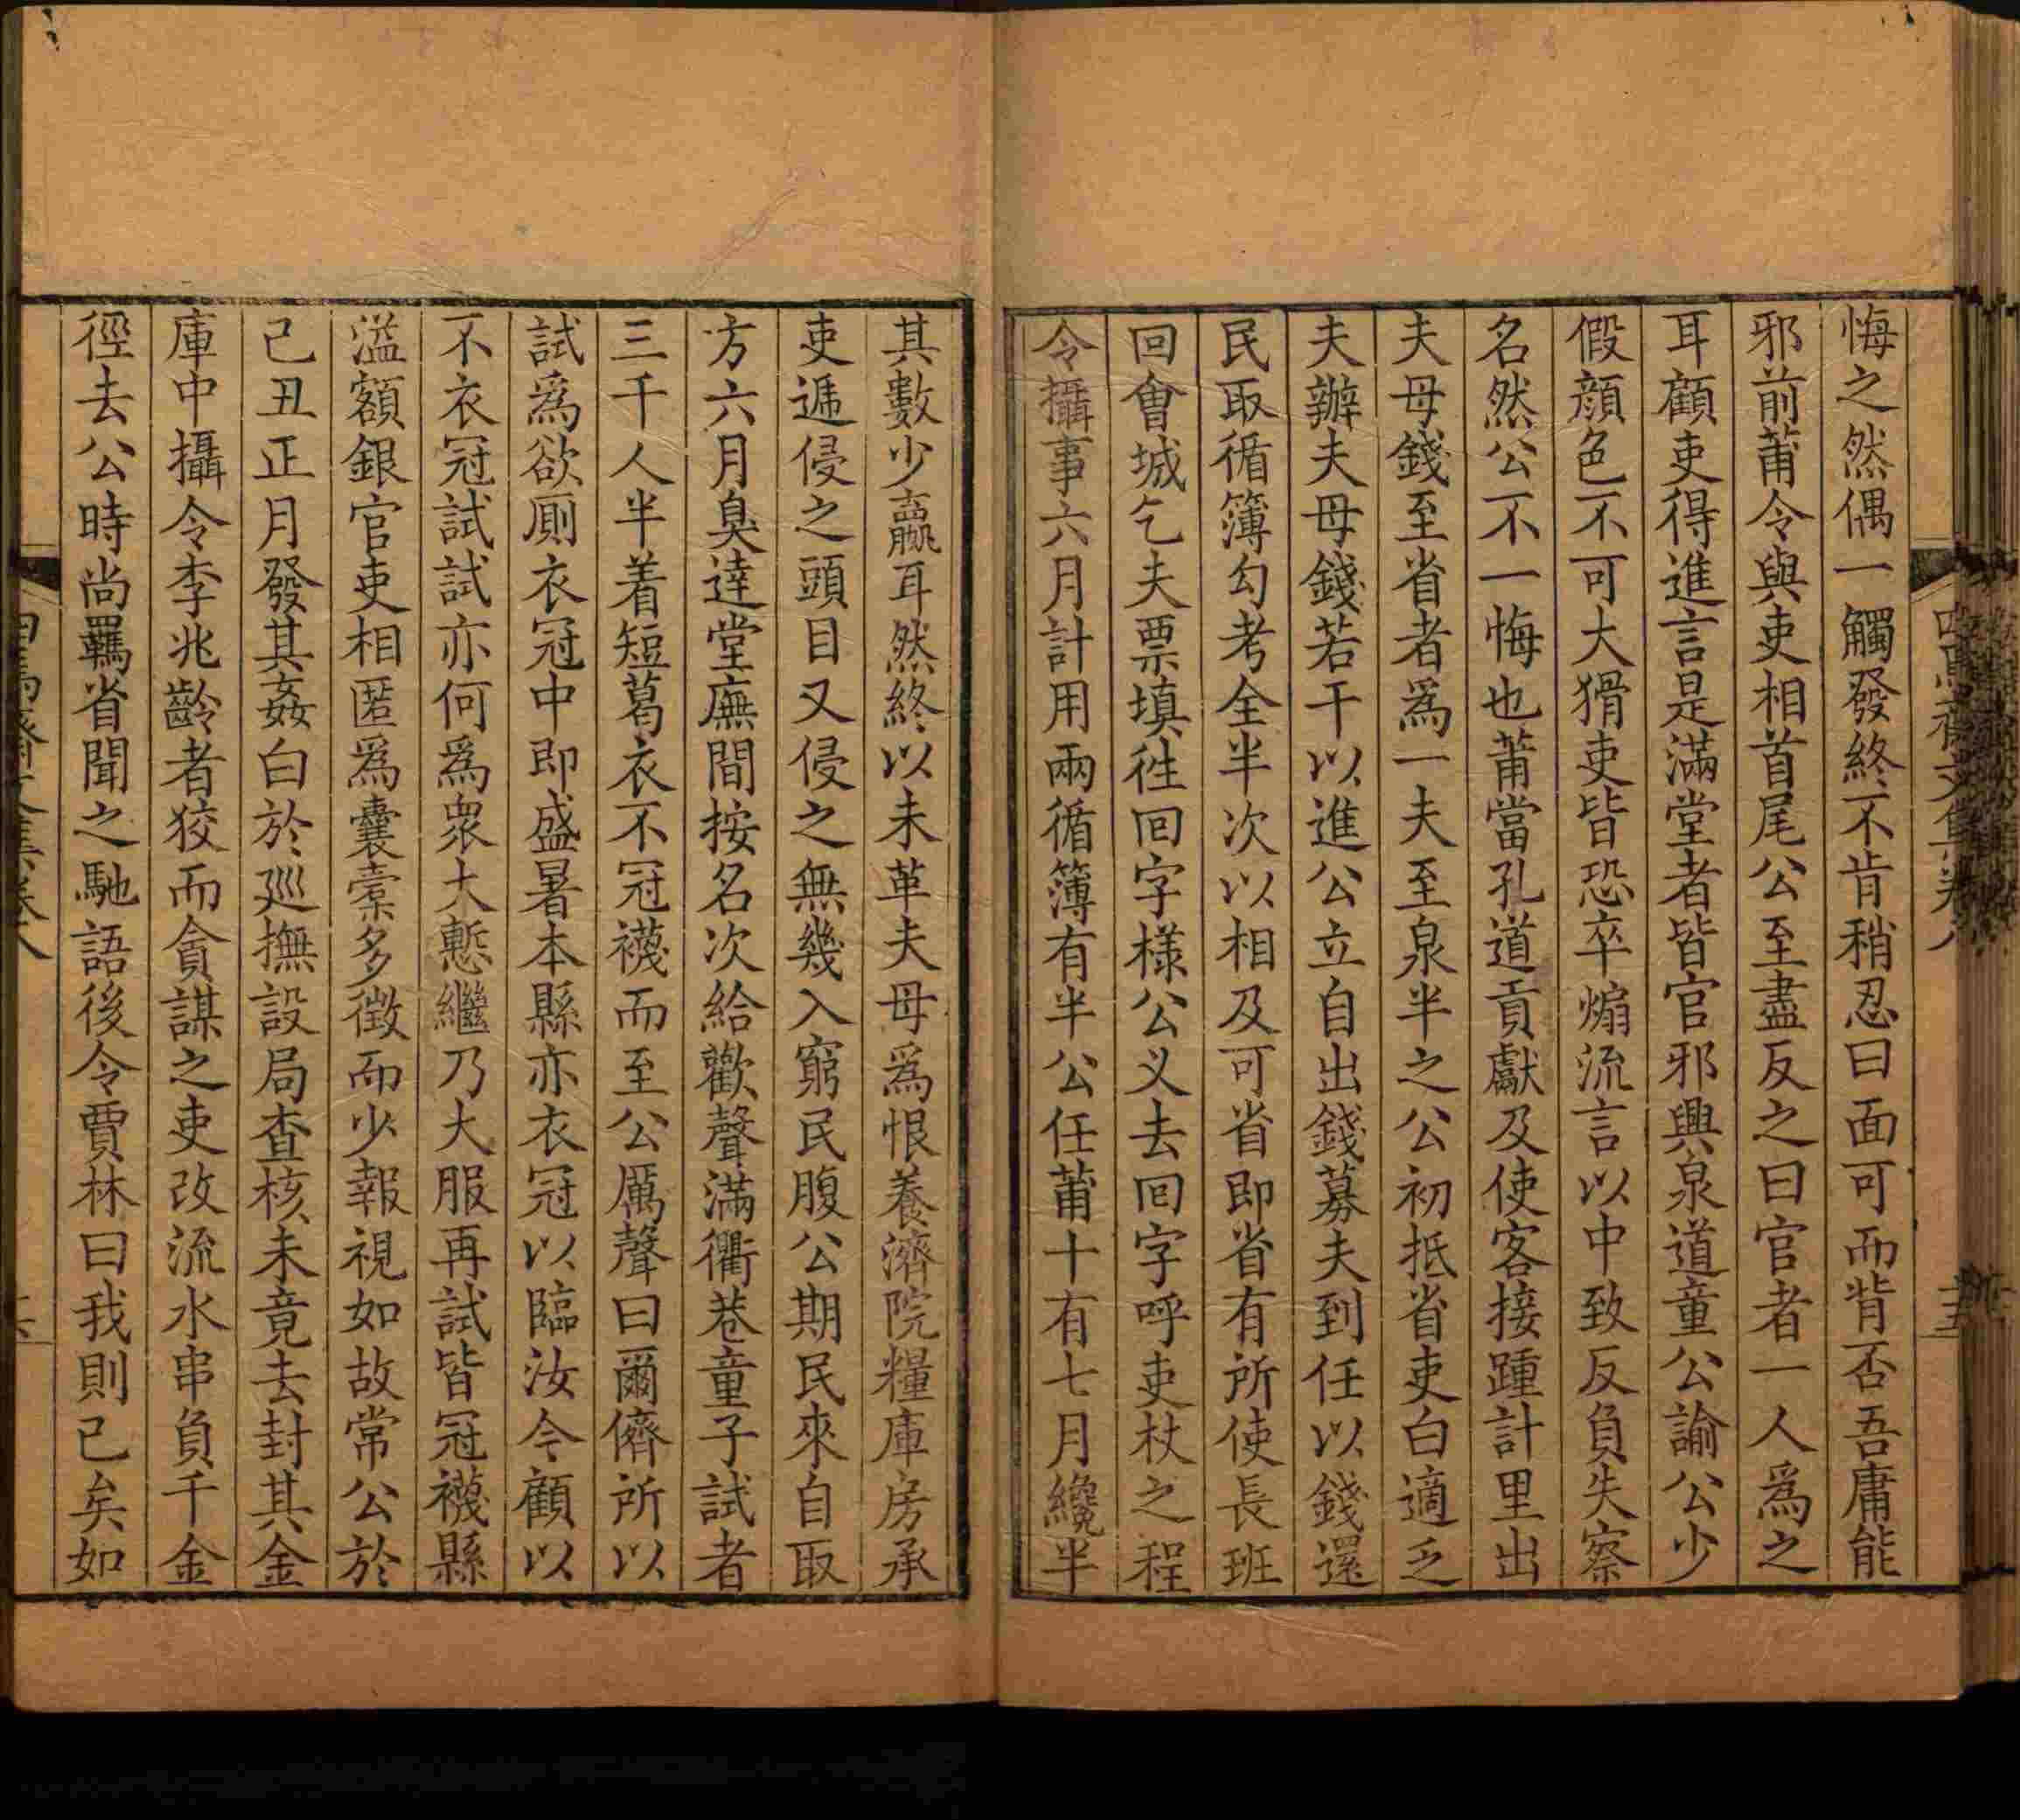 悔之然偶一觸發終不肯稍忍曰面可而背否吾庸能
邪前莆令與吏相首尾公至盡反之曰官者一人爲之
耳顧吏得進言是滿堂者皆官邪興泉道童公諭公少
假顏色不可大猾吏皆恐卒煽流言以中致反負失察
名然公不一悔也莆當孔道貢獻及使客接踵計里出
夫母錢至省者爲一夫至泉半之公初抵省吏白適乏
夫辦夫母錢若干以進公立自出錢募夫到任以錢還
民取循簿勾考全半次以相及可省即省有所使長班
回會城乞夫票填徃囘字樣公义去囘字呼吏杖之程
令攝事六月計用兩循簿有半公任莆十有七月纔半
其數少贏耳然終以未革夫母爲恨養濟院糧庫房承
吏遞侵之頭目又侵之無幾入窮民腹公期民來自取
方六月臭達堂廡間按名次給歡聲滿衢巷童子試者
三千人半着短葛衣不冠襪而至公厲聲曰爾儕所以
試爲欲厠衣冠中即盛暑本縣亦衣冠以臨汝今顧以
不衣冠試試亦何爲衆大慙繼乃大服再試皆冠襪縣
溢額銀官吏相匿爲囊橐多徴而少報視如故常公於
己丑正月發其姦白於廵撫設局查核未竟去封其金
庫中攝令李兆齡者狡而貪謀之吏改流水串負千金
徑去公時尚羈省聞之馳語後令賈林曰我則已矣如